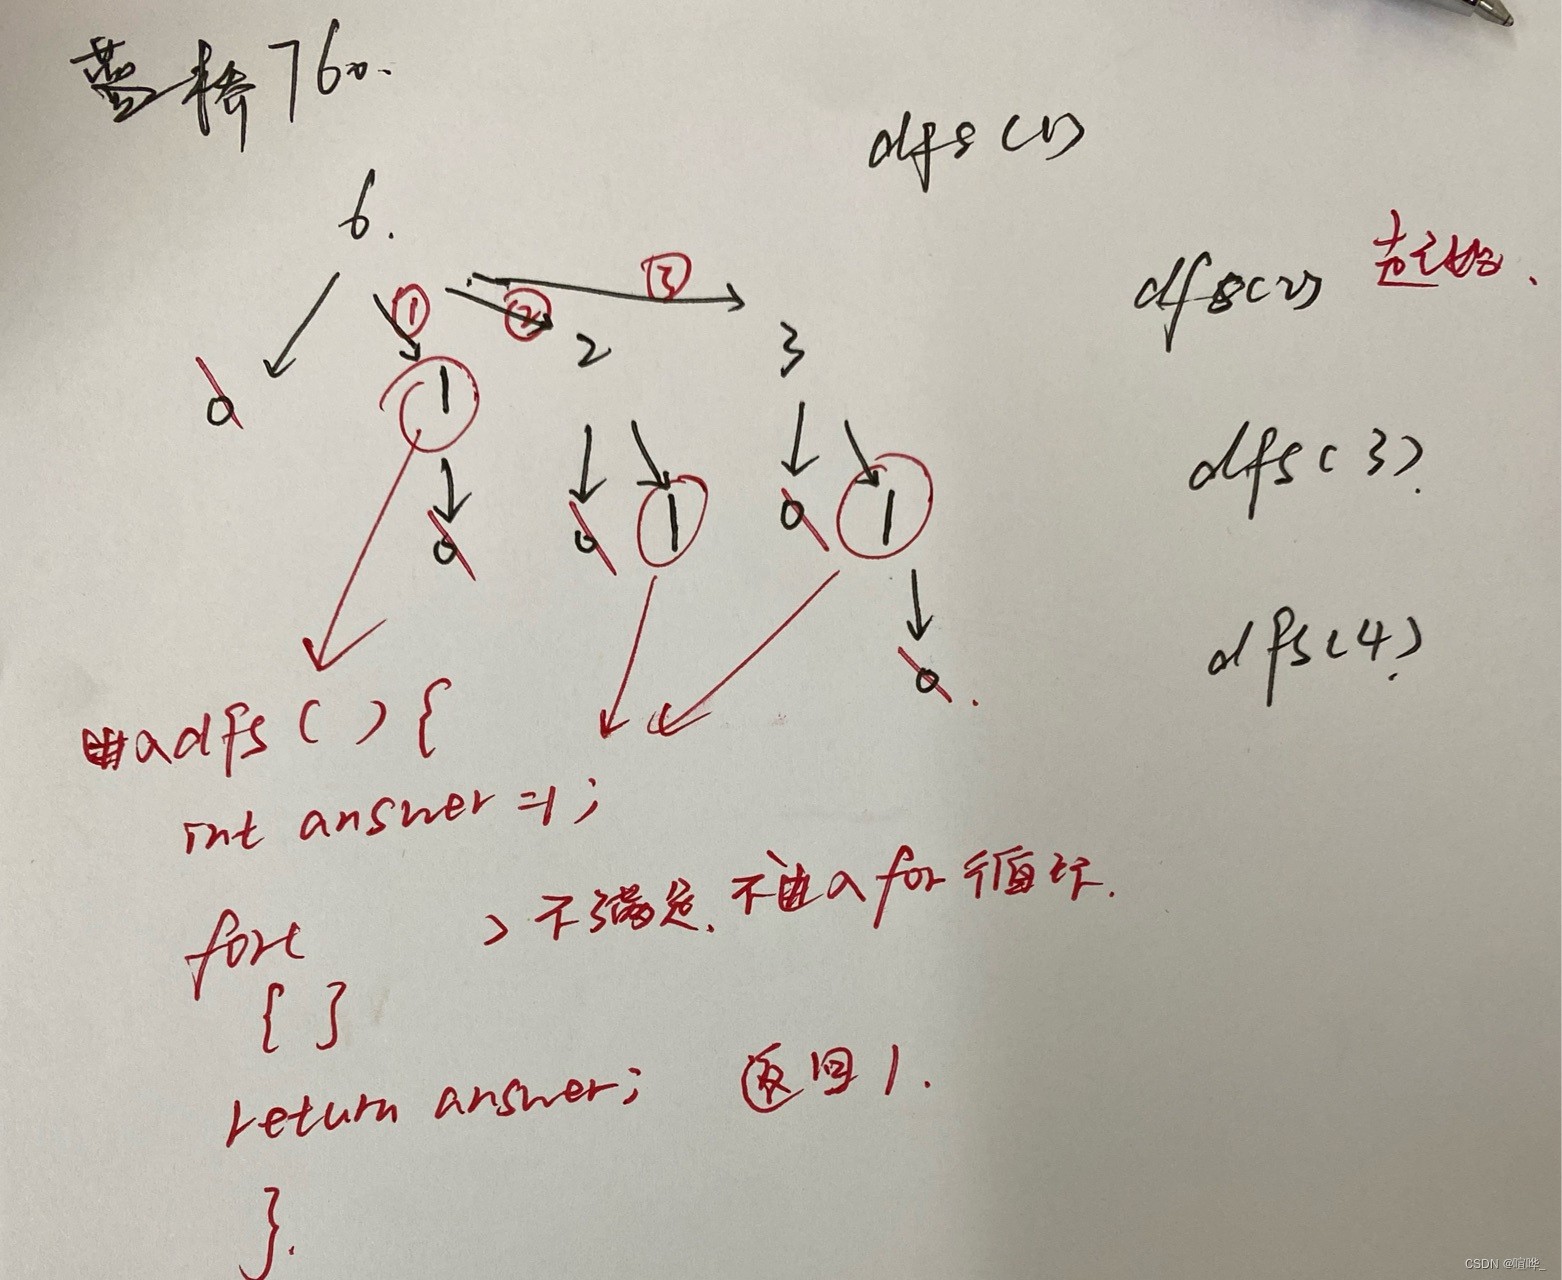 蓝桥760.
dfs(1)
6.
dfs(2)
①
②
③
0
1
2
3
dfs(3)
0
0
1
0
1
0
dfs(4)
dfs(){
int answer=1;
for(
)不满足,不进入for循环.
{ }
return answer; 返回1.
}
CSDN @喧哗_